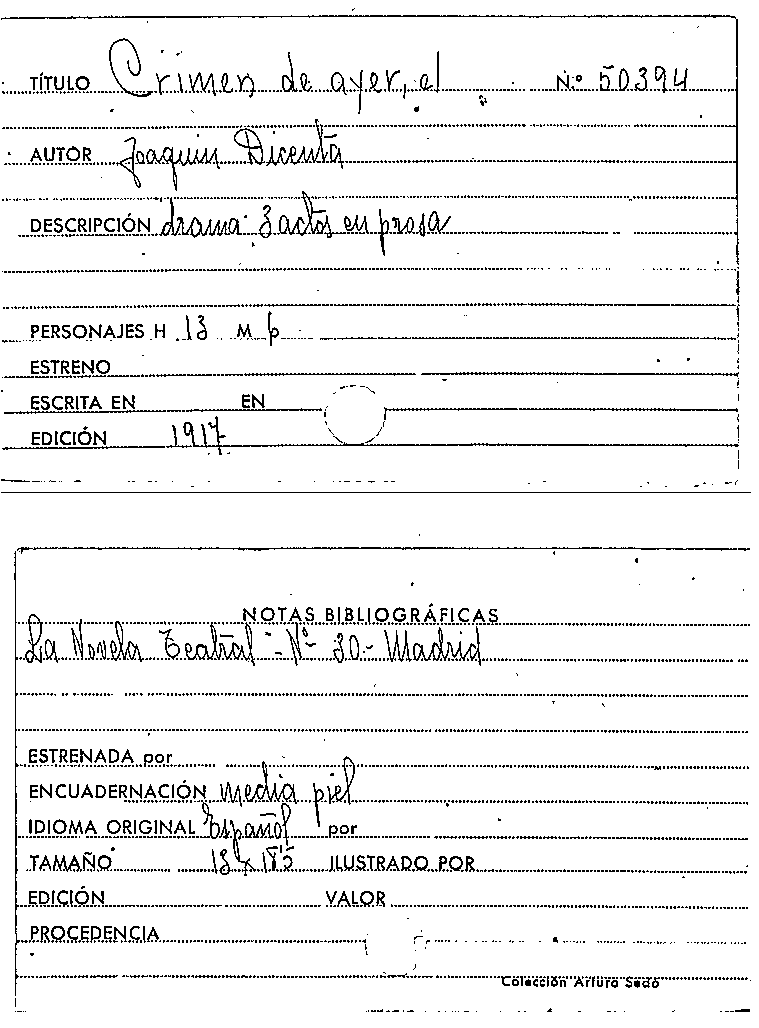 TÍTULO Crimen de ayer, el N.º 50394
AUTOR Joaquin Dicenta
DESCRIPCIÓN drama 3 actos en prosa
PERSONAJES H 13 M 6
ESTRENO
ESCRITA EN EN
EDICIÓN 1917
NOTAS BIBLIOGRÁFICAS
La Novela Teatral - Nº 30.- Madrid
ESTRENADA por
ENCUADERNACIÓN media piel
IDIOMA ORIGINAL Español por
TAMAÑO 13 x 18'5 ILUSTRADO POR
EDICIÓN VALOR
PROCEDENCIA
Colección Arturo Sedó